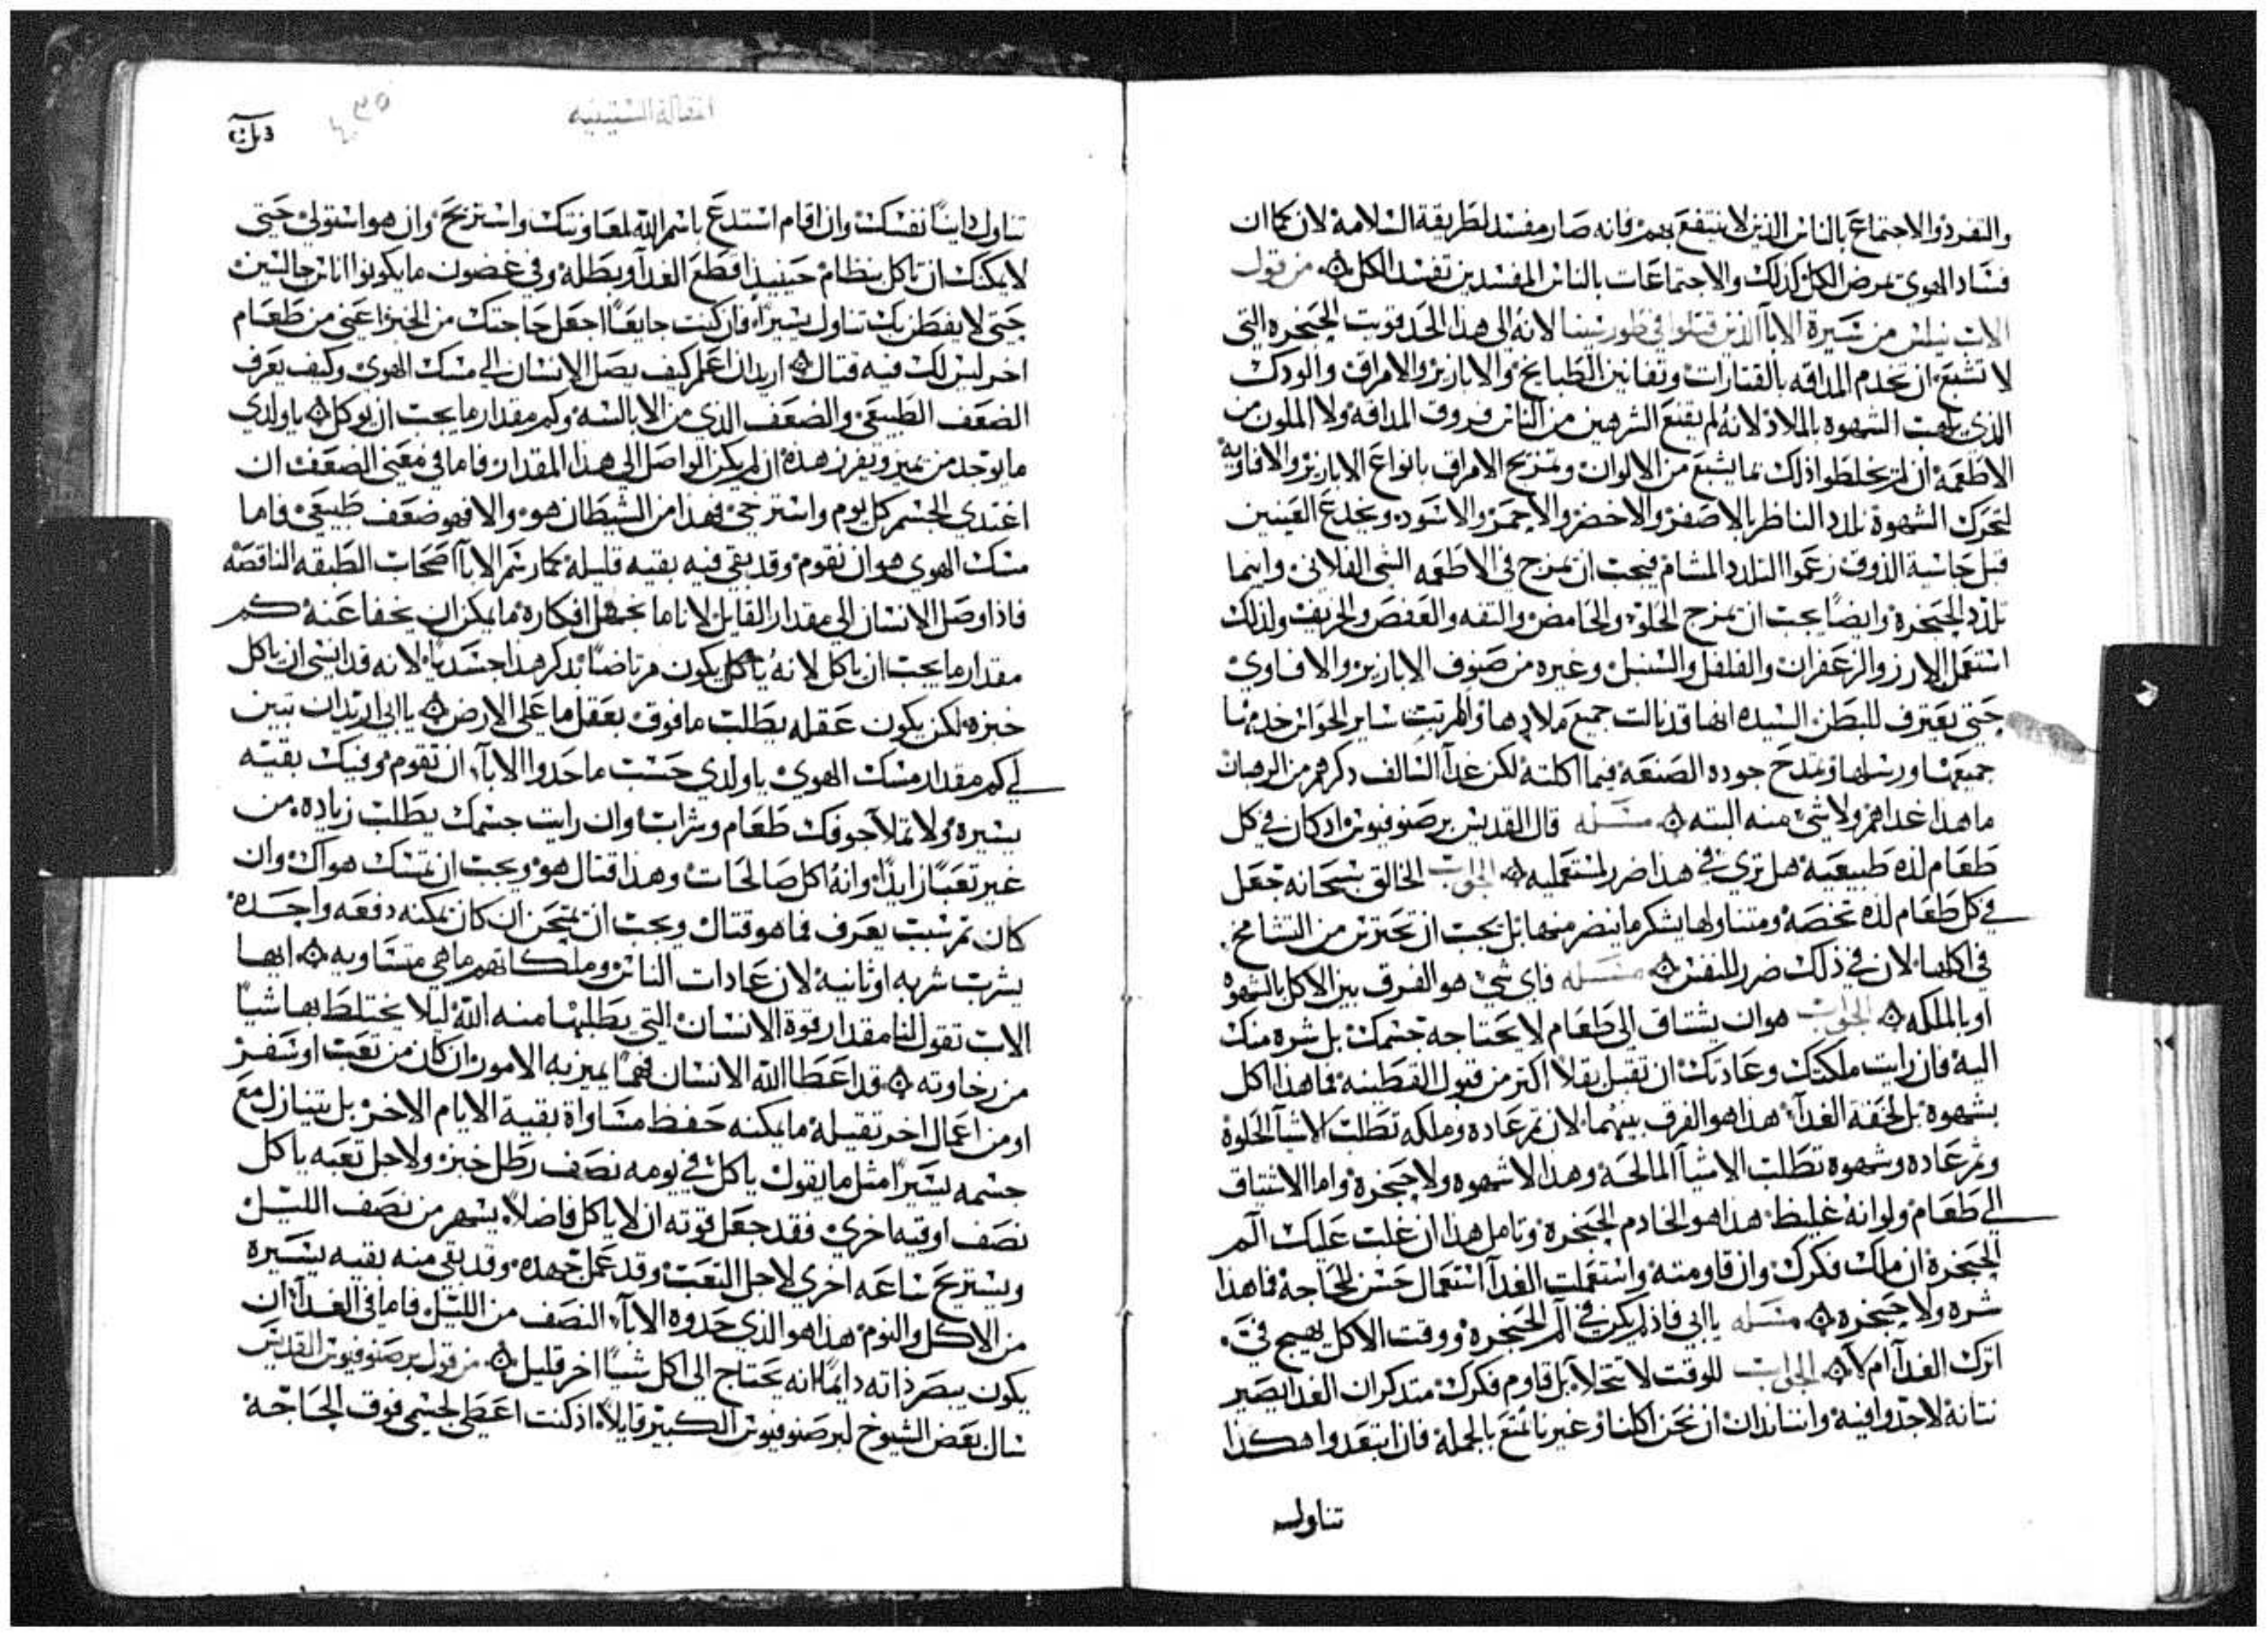 والتفرد والاجتماع بالناس الذين لا ينتفع بهم فانه صار مفسد لطريقة السلامة لان كما ان
فساد الهوى يمرض الكل كذلك والاجتماعات بالناس المفسدين تفسد الكل من قول
الاب نيلس من سيرة الابآ الذين قتلوا في طور سينا لانه الى هذا الحد قويت الحنجره التي
لا تشبع ان تخدم المذاقه بالقتارات وتفانين الطبايخ والابازير والامراق والودك
الذي يلهب الشهوة بالملاذ لانه لم يقنع الشرهين من الناس فروق المذاقه ولا الملون من
الاطعمه ان لم يخلطوا ذلك بما يشبع من الالوان وتمزيج الامراق بانواع الابازير والافاويه
لتحرك الشهوة بلذذ الناظر بالاصفر والاخضر والاحمر والاسود ويخدع العينين
قبل حاسة الذوق زعموا التلذد المشام فيجب ان يمزج في الاطعمه الشي الفلاني وايما
تلذذ الحنجرة وايضا يجب ان يمزج الحلو والحامض والتفه والعفص والحريف ولذلك
استعمل الارز والزعفران والفلفل والسنبل وغيره من صنوف الابازير والافاوي
حتى يعترف للبطن السيده انها قد نالت جميع ملاذها والمرتبت ساير الحواس خدمتها
جميعها ورسلها وتمدح جوده الصنعه فيما اكلته لكن غدآ السالف ذكرهم من الرهبان
ما هذا غداهم ولا شي منه البته مسله قال القديس برصنوفيوس اذ كان في كل
طعام لذه طبيعيه هل ترى في هذا ضرر لمستعمليه الجواب الخالق سبحانه جعل
في كل طعام لذه تخصه ومتناولها بشكر ما ينضر منها بل يجب ان تحترس من التسامح
في اكلها لان في ذلك ضرر للنفس مسله فاي شي هو الفرق بين الاكل بالشهوه
او بالملكه الجواب هو ان يشتاق الى طعام لا يحتاجه جسمك بل شره منك
اليه فان رايت ملكتك وعادتك ان تقبل بقلا اكتر من قبول القطنيه فما هذا اكل
بشهوة بل لخفة الغدآ هذا هو الفرق بينهما لان ثم عاده وملكه تطلب الاشيآ الحلوة
وثم عاده وشهوة تطلب الاشيآ المالحه وهذا لا شهوه ولا حنجره واما الاشتياق
الى طعام ولو انه غليظ هذا هو الخادم الحنجرة وتامل هذا ان غلب عليك الم
الحنجرة ان ملك فكرك وان قاومته واستعملت الغدآ استعمال حسن للحاجة فما هذا
شره ولا حنجره مسله يا ابي فاذا لم يكن في الم الحنجرة ووقت الاكل يهيج فيّ
اترك الغدآ ام لا الجواب للوقت لا تتخلا بل قاوم فكرك متذكر ان الغدا يصير
نتانة لاجدوا فيه واننا ندان ان نحن اكلنا وغيرنا تمنع بالجملة فان ابتعدوا هكذا
تناول
المقالة الستينيه
تناول داينًا نفسك وان اقام استدع باسم الله لمعاونتك واستريح وان هو استولى حتى
لا يمكنك ان تاكل بنظام حينيذ اقطع الغدآ وبطله وفي غضون ما يكونوا اناس جالسين
حتى لا يفطن بك تناول يسيرا فان كنت جايعًا اجعل حاجتك من الخبز اعني من طعام
اخر ليس لك فيه قتال اريد ان اعلم كيف يصل الانسان الى مسك الهوى وكيف يعرف
الضعف الطبيعي والضعف الذي من الابالسه وكم مقدار ما يجب ان يوكل يا ولدي
ما يوجد من يميز ويفرز هذه ان لم يكن الواصل الى هذا المقدار فاما في معنى الضعف ان
اغتدى الجسم كل يوم واسترخى فهذا من الشيطان هو والا فهو ضعف طبيعي واما
مسك الهوى هو ان نقوم وقد بقي فيه بقيه قليله كما رسم الابآ اصحاب الطبقه الناقصه
فاذا وصل الانسان الى مقدار القايل لانا ما نجهل افكاره ما يمكن ان يخفا عنه كم
مقدار ما يجب ان ياكل لانه ياكل يكون مرتاضا بذكر هذا جسديا لانه قد انسى ان ياكل
خبزه لكن يكون عقله يطلب ما فوق بعقل ما على الارض يا ابي اريد ان تبين
لي كم مقدار مسك الهوى يا ولدي حسب ما حدوا الابآ ان تقوم وفيك بقيه
يسيره ولا تملا جوفك طعام وشراب وان رايت جسمك يطلب زياده من
غير تعب زايد وانه اكل صالحات وهذا قتال هو ويجب ان تمسك هواك وان
كان ثم سبب يعرف فما هو قتال ويجب ان يمتحن ان كان يمكنه دفعه واحده
يشرب شربه او ثانيه لان عادات الناس وملكاتهم ما هي متساويه ايها
الاب تقول لنا مقدار قوة الانسان التي يطلبها منه الله ليلا يختلط بها شيا
من رخاوته قد اعطا الله الانسان فهمًا يميز به الامور ان كان من تعب او سفر
او من اعمال اخر تقيله ما يمكنه حفظ مساواة بقية الايام الاخر بل يتنازل مع
جسمه يسيرًا مثل ما يقول ياكل في يومه نصف رطل خبز ولاجل تعبه ياكل
نصف اوقيه اخرى فقد جعل قوته ان لا ياكل فاضلا يسهر من نصف الليل
ويستريح ساعه اخرى لاجل التعب وقد عمل جهده وقد بقي منه بقيه يسيره
من الاكل والنوم هذا هو الذي حدوه الابآ النصف من الليل فاما في الغدآ ان
يكون يبصر ذاته دايما انه يحتاج الى اكل شيا اخر قليل من قول برصنوفيوس القديس
سال بعض الشيوخ لبرصنوفيوس الكبير قايلا اذ كنت اعطي لجسمي فوق الحاجة